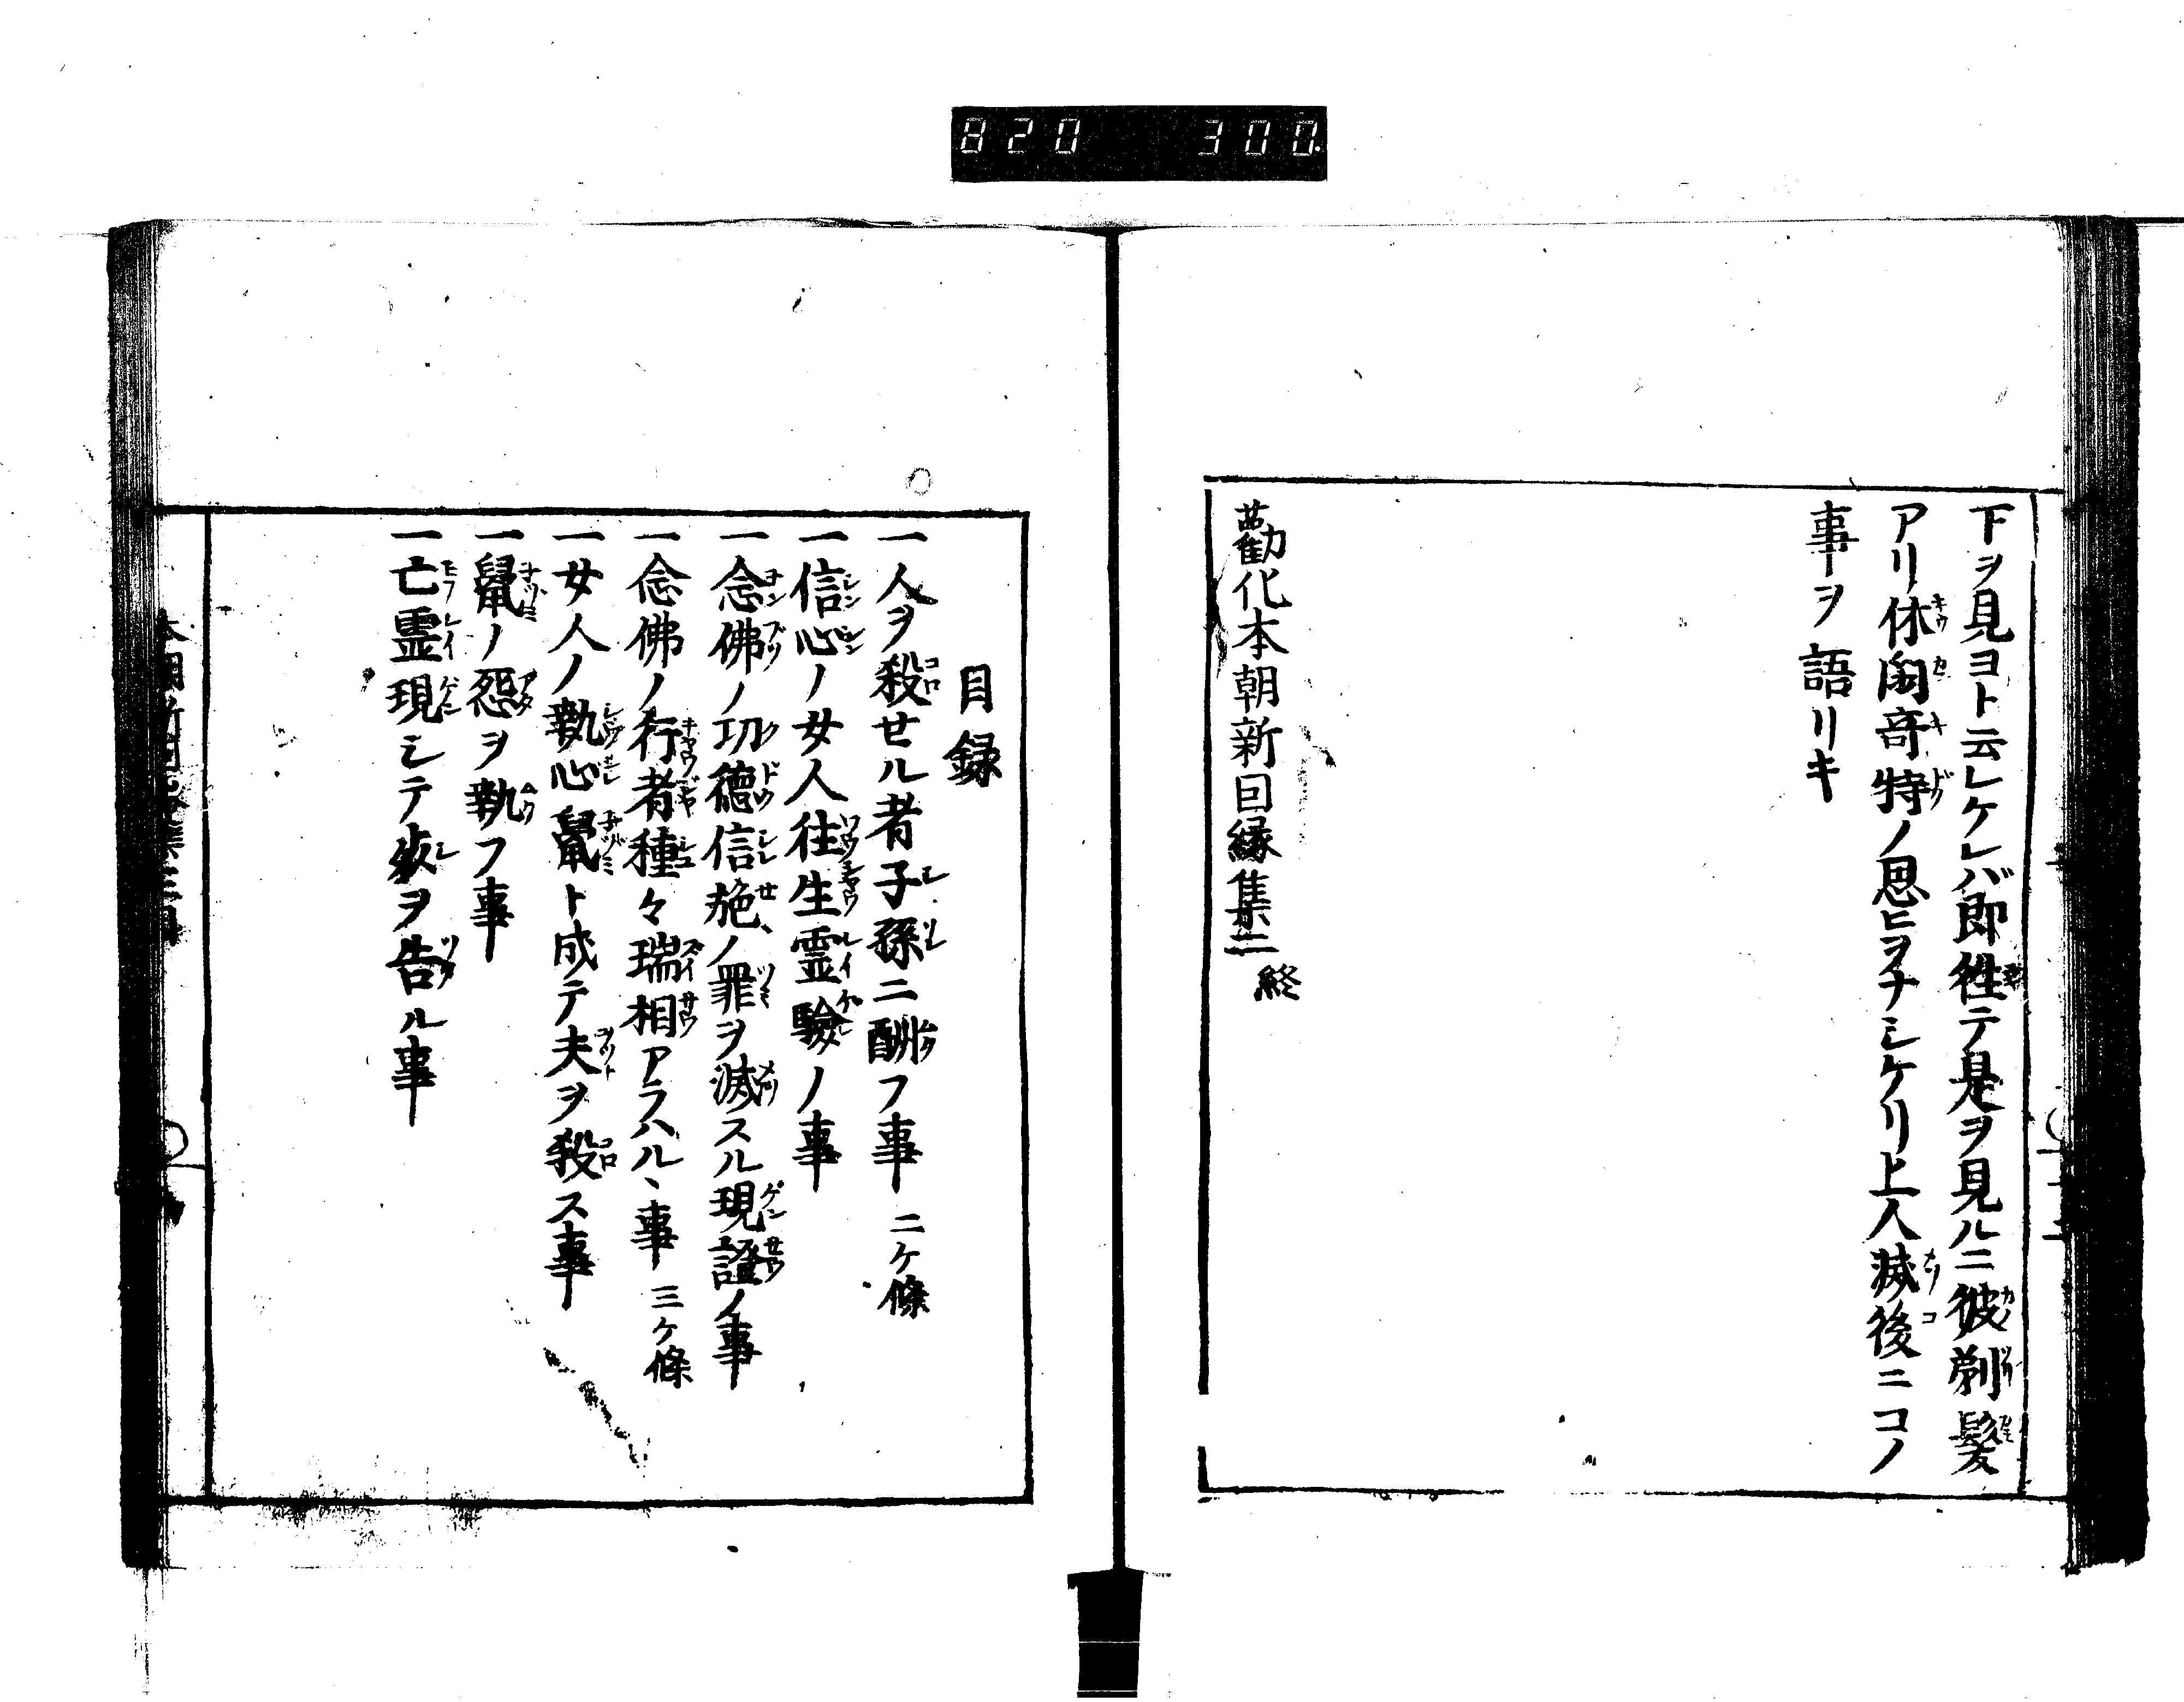 820 300.
下ヲ見ヨト云レケレバ即徃テ是ヲ見ルニ彼剃髮
アリ休閑奇特ノ思ヒヲナシケリ上人滅後ニコノ
事ヲ語リキ
勸化本朝新因縁集二終
目録
一人ヲ殺セル者子孫ニ酬フ事 二ケ條
一信心ノ女人往生霊驗ノ事
一念佛ノ功德信施ノ罪ヲ滅スル現證ノ事
一念佛ノ行者種々瑞相アラハルヽ事 三ケ條
一女人ノ執心鼠ト成テ夫ヲ殺ス事
一鼠ノ怨ヲ執フ事
一亡霊現シテ㱱ヲ告ル事